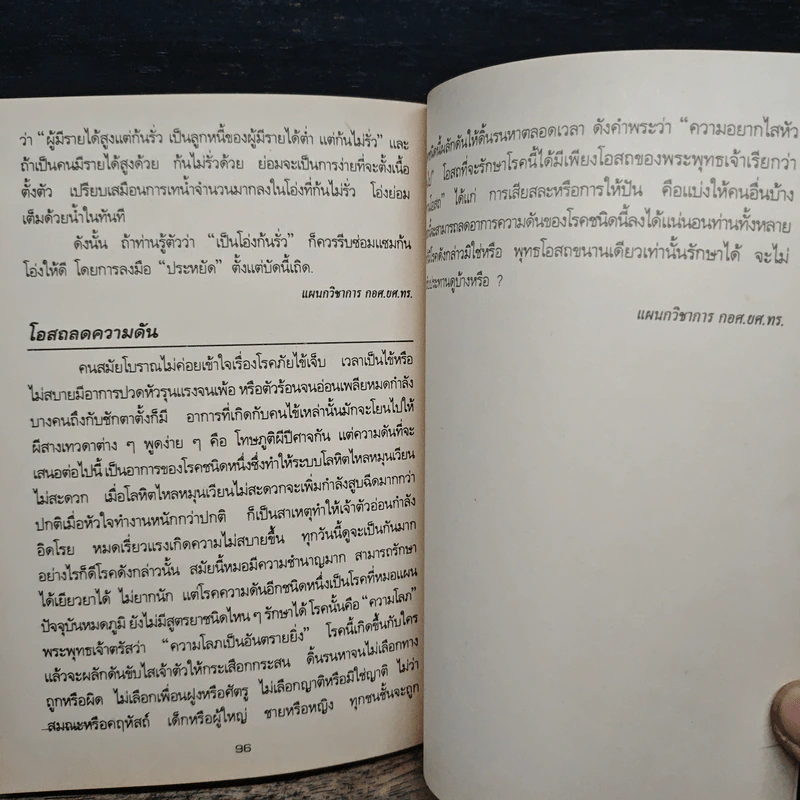 ว่า “ผู้มีรายได้สูงแต่ก้นรั่ว เป็นลูกหนี้ของผู้มีรายได้ต่ำ แต่ก้นไม่รั่ว” และ
ถ้าเป็นคนมีรายได้สูงด้วย ก้นไม่รั่วด้วย ย่อมจะเป็นการง่ายที่จะตั้งเนื้อ
ตั้งตัว เปรียบเสมือนการเทน้ำจำนวนมากลงในโอ่งที่ก้นไม่รั่ว โอ่งย่อม
เต็มด้วยน้ำในทันที
ดังนั้น ถ้าท่านรู้ตัวว่า “เป็นโอ่งก้นรั่ว” ก็ควรรีบซ่อมแซมก้น
โอ่งให้ดี โดยการลงมือ “ประหยัด” ตั้งแต่บัดนี้เถิด.
แผนกวิชาการ กอศ.ยศ.ทร.
โอสถลดความดัน
คนสมัยโบราณไม่ค่อยเข้าใจเรื่องโรคภัยไข้เจ็บ เวลาเป็นไข้หรือ
ไม่สบายมีอาการปวดหัวรุนแรงจนเพ้อ หรือตัวร้อนจนอ่อนเพลียหมดกำลัง
บางคนถึงกับชักตาตั้งก็มี อาการที่เกิดกับคนไข้เหล่านั้นมักจะโยนไปให้
ผีสางเทวดาต่าง ๆ พูดง่าย ๆ คือ โทษภูติผีปีศาจกัน แต่ความดันที่จะ
เสนอต่อไปนี้ เป็นอาการของโรคชนิดหนึ่งซึ่งทำให้ระบบโลหิตไหลหมุนเวียน
ไม่สะดวก เมื่อโลหิตไหลหมุนเวียนไม่สะดวกจะเพิ่มกำลังสูบฉีดมากกว่า
ปกติเมื่อหัวใจทำงานหนักกว่าปกติ ก็เป็นสาเหตุทำให้เจ้าตัวอ่อนกำลัง
อิดโรย หมดเรี่ยวแรงเกิดความไม่สบายขึ้น ทุกวันนี้ดูจะเป็นกันมาก
อย่างไรก็ดีโรคดังกล่าวนั้น สมัยนี้หมอมีความชำนาญมาก สามารถรักษา
ได้เยียวยาได้ ไม่ยากนัก แต่โรคความดันอีกชนิดหนึ่งเป็นโรคที่หมอแผน
ปัจจุบันหมดภูมิ ยังไม่มีสูตรยาชนิดไหน ๆ รักษาได้ โรคนั้นคือ “ความโลภ”
พระพุทธเจ้าตรัสว่า “ความโลภเป็นอันตรายยิ่ง” โรคนี้เกิดขึ้นกับใคร
แล้วจะผลักดันขับไสเจ้าตัวให้กระเสือกกระสน ดิ้นรนหาจนไม่เลือกทาง
ถูกหรือผิด ไม่เลือกเพื่อนฝูงหรือศัตรู ไม่เลือกญาติหรือมิใช่ญาติ ไม่ว่า
สมณะหรือคฤหัสถ์ เด็กหรือผู้ใหญ่ ชายหรือหญิง ทุกชนชั้นจะถูก
96
ผลักดันให้ดิ้นรนหาตลอดเวลา ดังคำพระว่า “ความอยากไสหัว
โอสถที่จะรักษาโรคนี้ได้มีเพียงโอสถของพระพุทธเจ้าเรียกว่า
ได้แก่ การเสียสละหรือการให้ปัน คือแบ่งให้คนอื่นบ้าง
สามารถลดอาการความดันของโรคชนิดนี้ลงได้แน่นอนท่านทั้งหลาย
โรคดังกล่าวมิใช่หรือ พุทธโอสถขนานเดียวเท่านั้นรักษาได้ จะไม่
ประทานดูบ้างหรือ ?
แผนกวิชาการ กอศ.ยศ.ทร.